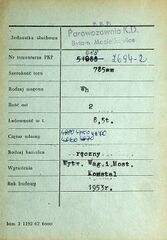 P.K.P.
Jednostka służbowa
Parowozownia K.D.
Bytom-Maciejkowice
Nr inwentarza PKP
2694-2
Szerokość toru 785mm
Rodzaj wagonu Wh
Ilość osi 2
Ładowność w t. 8,5t.
Ciężar własny
Rodzaj hamulca ręczny
Wytwórnia Wytw. Wag. i Most.
Rok budowy 1953r.